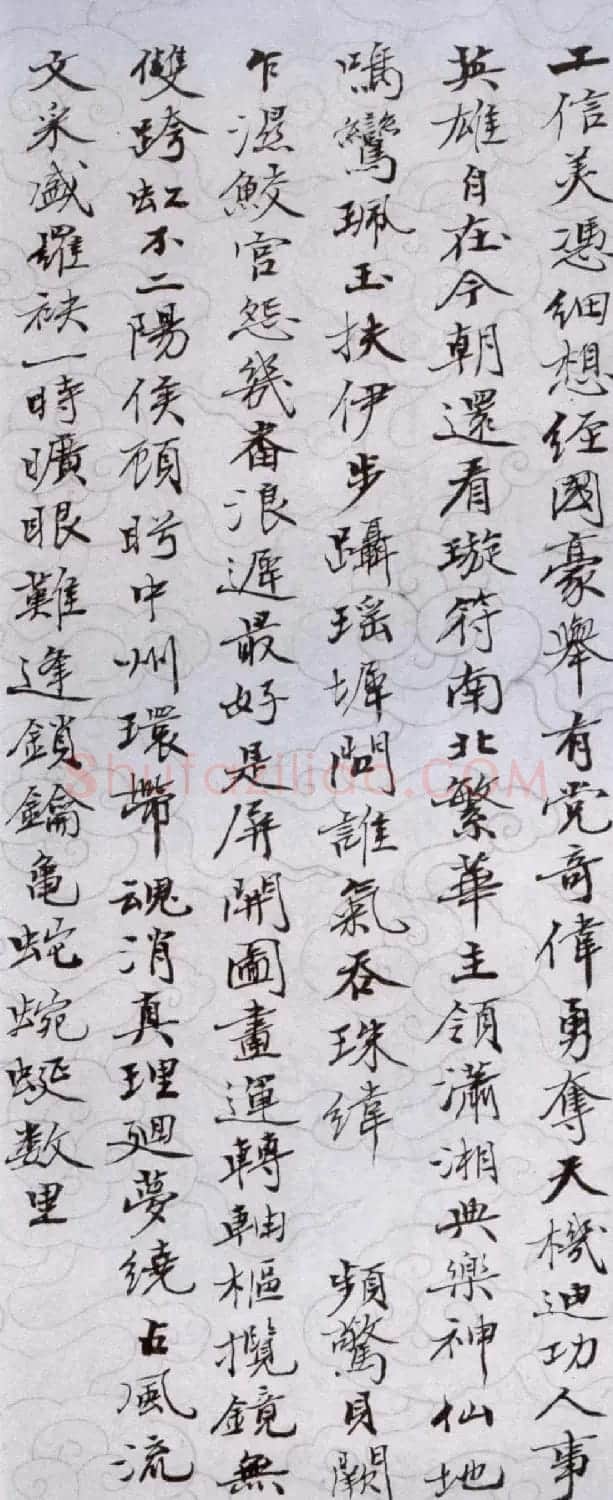 工信美憑細想經國豪舉有党奇偉勇奪天機迪功人事
英雄自在今朝還看璇符南北繁華主領瀟湘典樂神仙地
鳴鸞珮玉扶伊步躡瑶墀問誰氣吞珠緯 頻驚貝闕
乍濕鮫宮怨幾番浪遲最好是屏開圖畫運轉軸樞攬鏡無
雙跨虹不二陽侯顧眄中州環帶魂消真理廻夢繞占風流
文采盛羅袂一時曠眼難逢鎖鑰亀蛇蜿蜒数里
Shufaziliao.COM